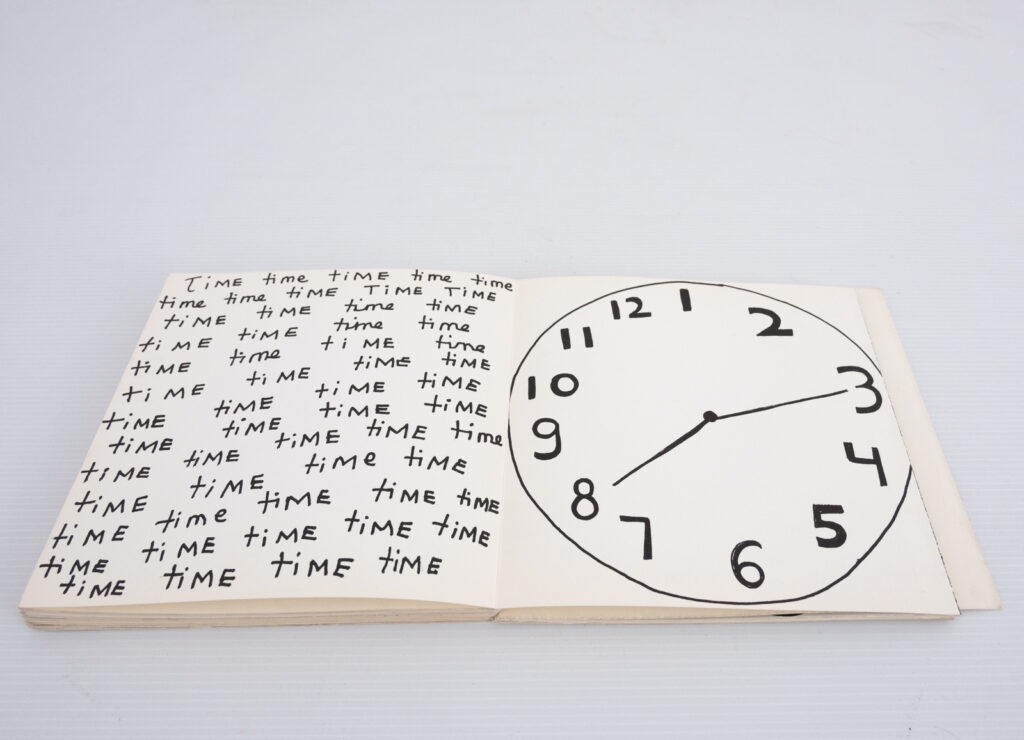 TiME time tiME time time
time time tiME TiME TiME
tiME tiME time tiME
tiME tiME time time
tiME time tiME time
tiME tiME tiME tiME
tiME tiME tiME tiME
tiME tiME tiME tiME
tiME tiME tiME tiME time
tiME tiME tiMe tiME
tiME time tiME tiME tiME
tiME tiME tiME tiME tiME
tiME tiME tiME tiME
12
1
2
3
4
5
6
7
8
9
10
11